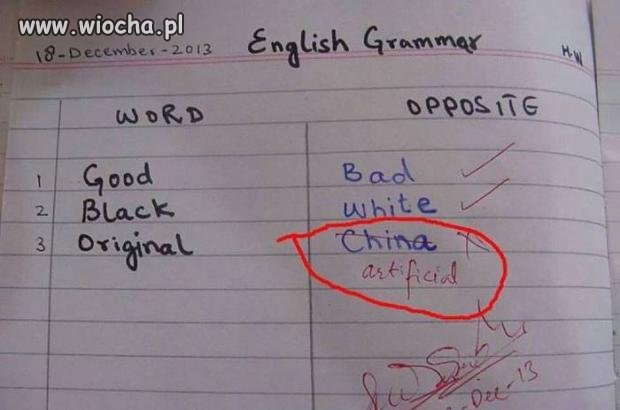 www.wiocha.pl
18-December-2013 English Grammar H.W
WORD OPPOSITE
1 Good Bad
2 Black White
3 Original China
artificial
Dec-13